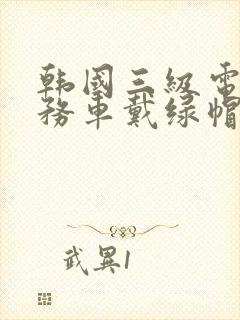 韩国三级电
务车戴绿帽
武異1